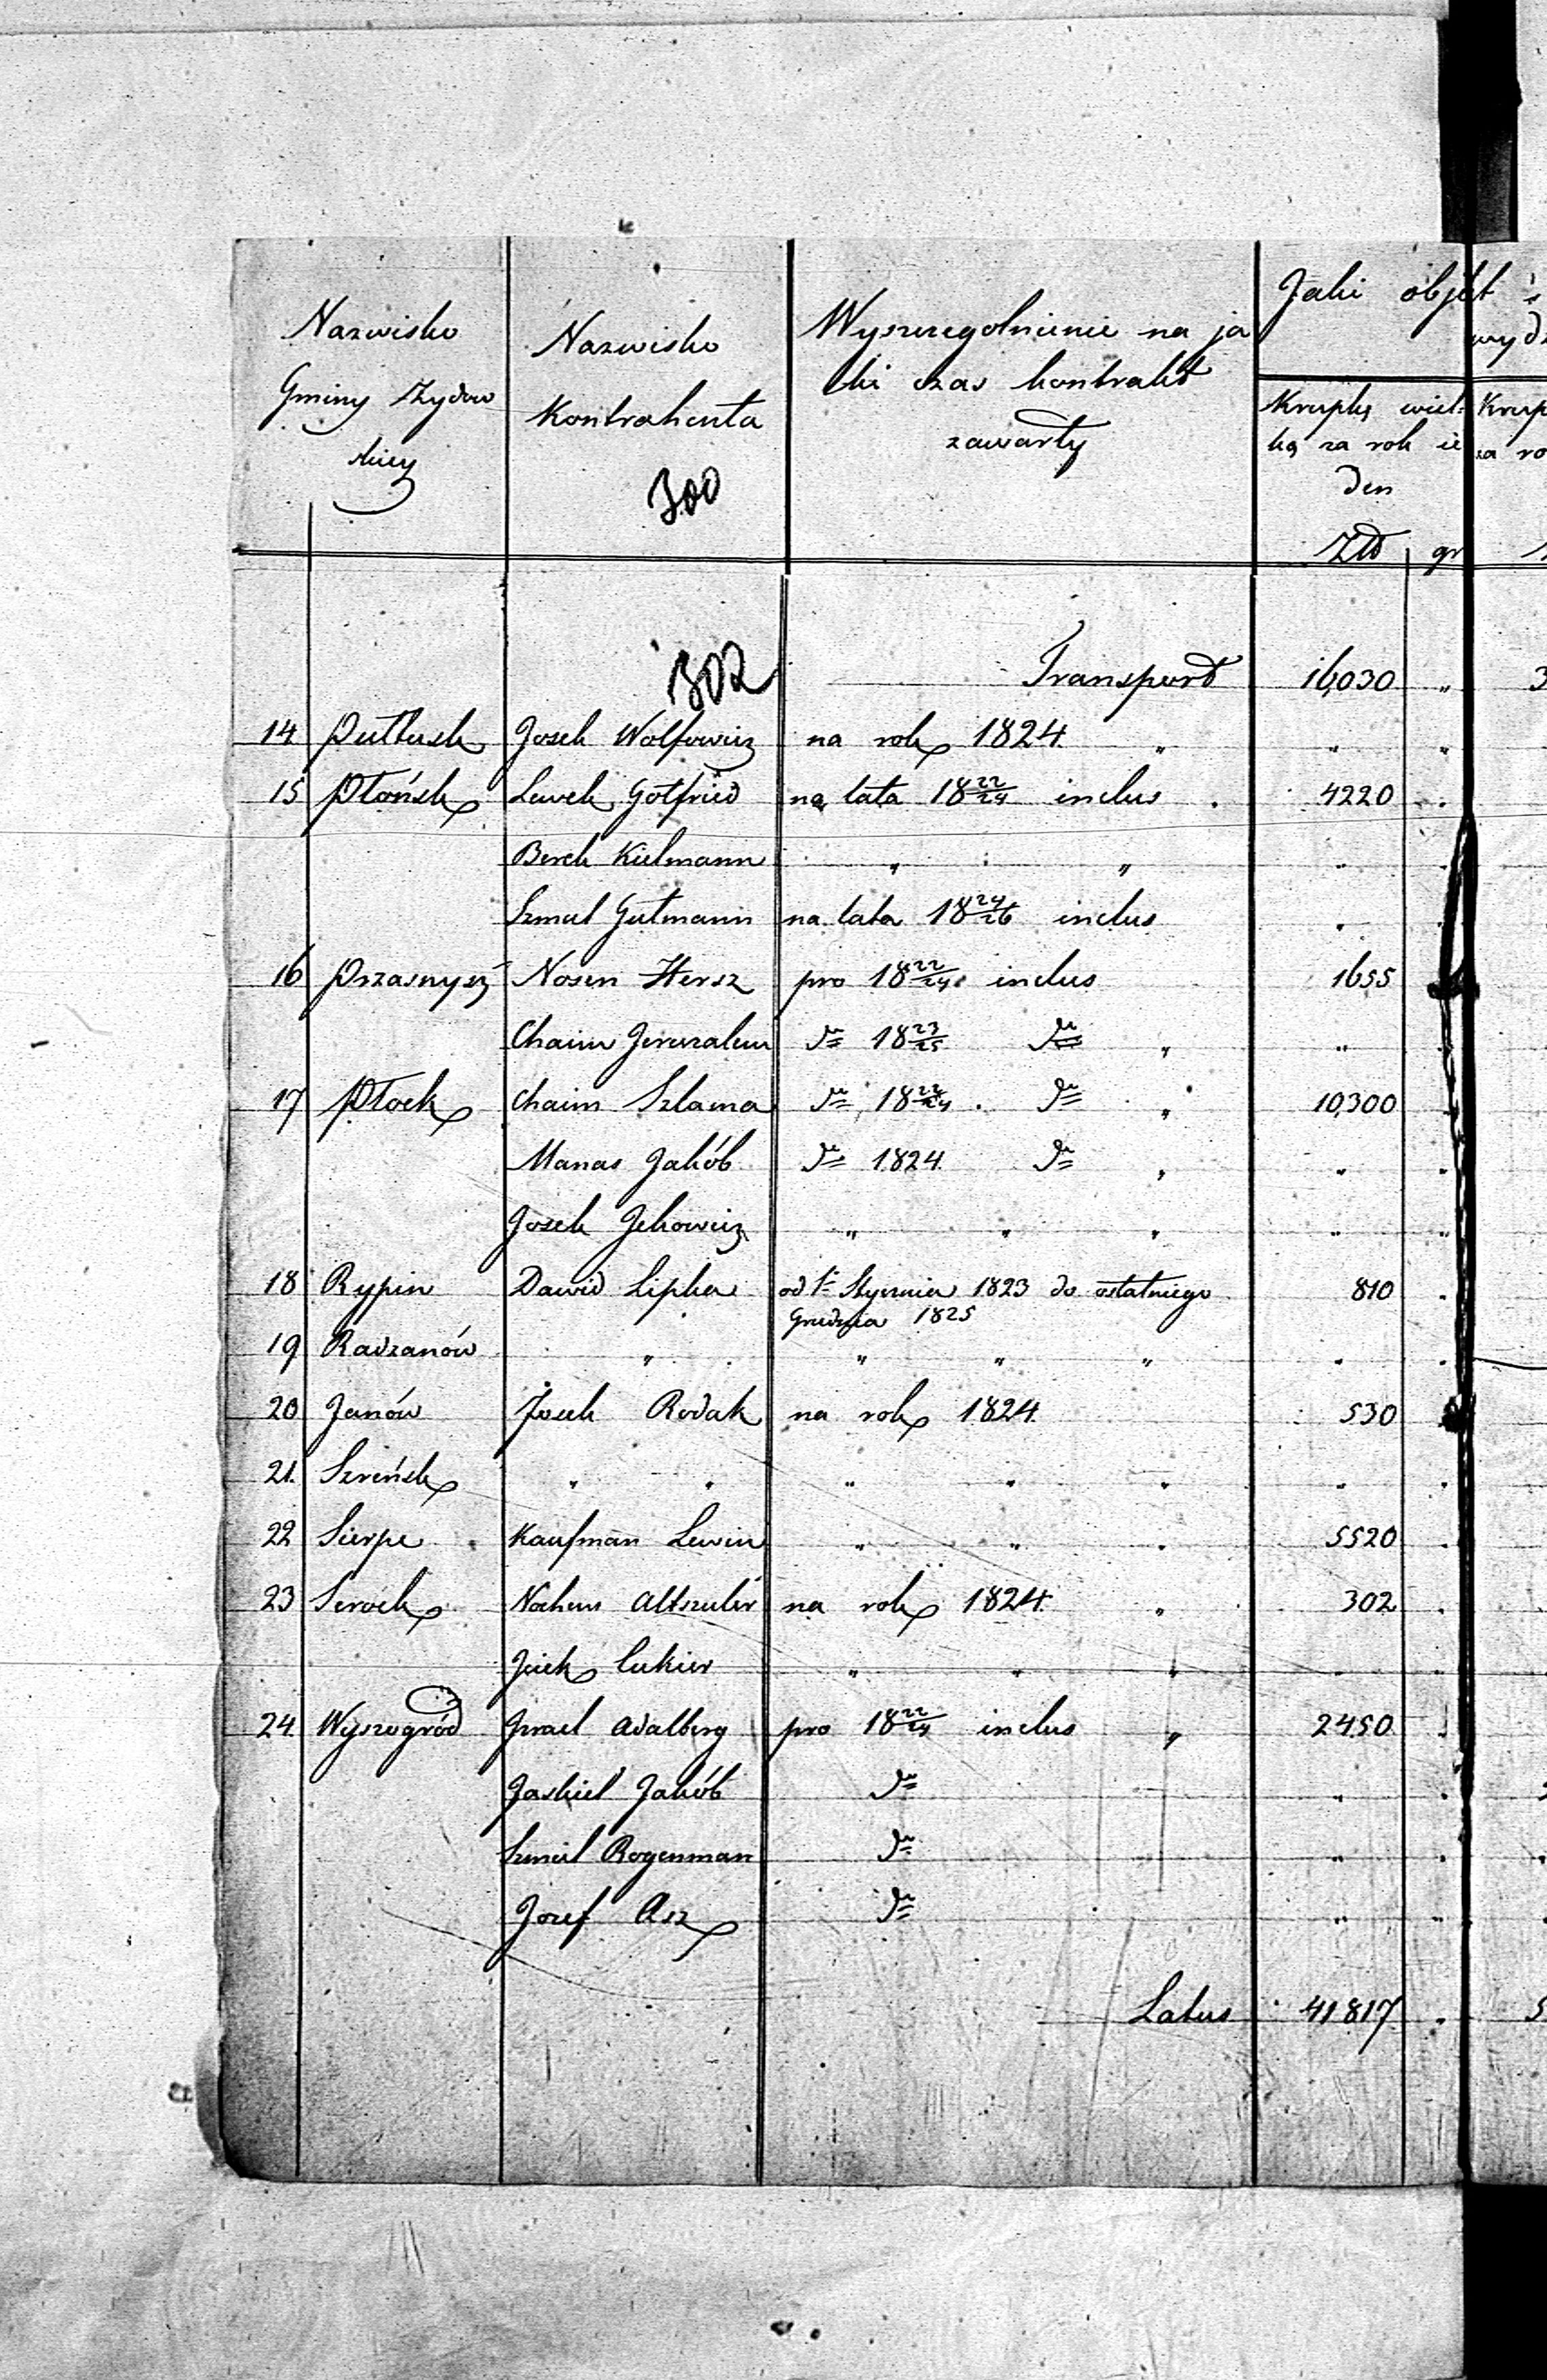 Nazwisko
Gminy Żydow
skiey
Nazwisko
Kontrahenta
300
Wyszczegolnienie na ja
ki czas kontrakt
zawarty
Jaki objekt
Krupkę wiel:
ką za rok ie
den
Zł gr
302
Transport 16,030 "
14 Pułtusk Josek Wolfowicz na rok 1824. " " "
15 Płońsk Lewek Gotfried na lata 18 22/24 inclus . 4220 .
Berek Kielmann " " "
Szmul Gutmann na lata 18 24/26 inclus "
16 Przasnysz Nosen Hersz pro 18 22/24 inclus 1655
Chaim Jeruzalem do 18 23/25 do " "
17 Płock Chaim Szlama do 18 22/24 . do " 10,300
Manas Jakób do 1824. do " "
Josek Jckowicz " " " " "
18 Rypin Dawid Lipka od 1 Stycznia 1823 do ostatniego 810 .
Grudnia 1825
19 Radzanów " " " " " .
20 Janów Josek Rodak na rok 1824. 530
21. Szreńsk " " " " " " .
22 Sierpc Kaufman Lewin " " " 5520 .
23 Serock Nochem Altszuler na rok 1824. " 302 .
Jcek Cukier " " " " "
24. Wyszogród Jzrael Adalberg pro 18 22/24 inclus " 2450
Jaskiel Jakób do " .
Szmul Rogenman do " "
Jozef Asz do " "
Latus 41817 .